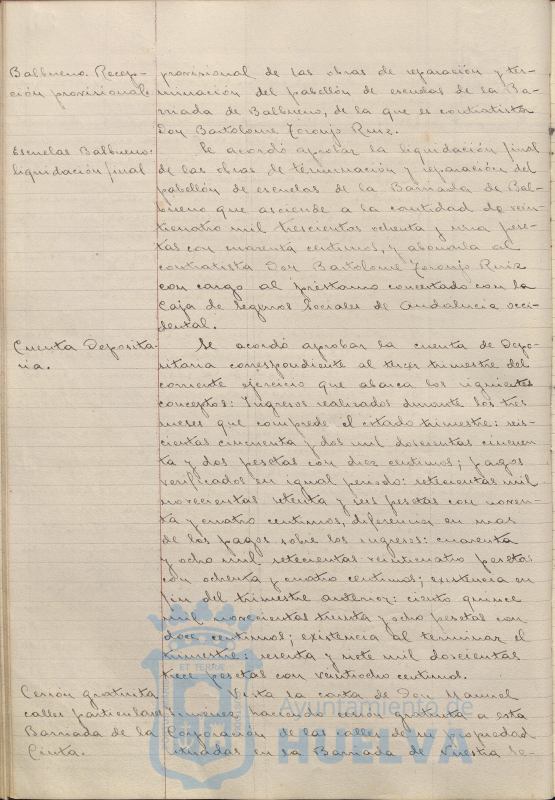 Balbueno. Recep-
ción provisional.
provisional de las obras de reparación y ter-
minación del pabellón de escuelas de la Ba-
rriada de Balbueno, de la que es contratista
Don Bartolome Toronjo Ruiz.
Escuelas Balbueno:
liquidación final
Se acordó aprobar la liquidación final
de las obras de terminación y reparación del
pabellón de escuelas de la Barriada de Bal-
bueno que asciende a la cantidad de vein-
ticuatro mil trescientas ochenta y una pese-
tas con cuarenta centimos, y abonarla al
contratista Don Bartolome Toronjo Ruiz
con cargo al préstamo concertado con la
Caja de Seguros Sociales de Andalucia occi-
dental.
Cuenta Deposita-
ria.
Se acordó aprobar la cuenta de Depo-
sitaria correspondiente al tercer trimestre del
corriente ejercicio que abarca los siguientes
conceptos: Ingresos realizados durante los tres
meses que comprede el citado trimestre: seis-
cientas cincuenta y dos mil doscientas cincuen-
ta y dos pesetas con diez centimos; pagos
verificados en igual periodo: setecientas mil
novecientas setenta y seis pesetas con noven-
ta y cuatro centimos, diferencia en mas
de los pagos sobre los ingresos: cuarenta
y ocho mil setecientas veinticuatro pesetas
con ochenta y cuatro centimos; existencia en
fin del trimestre anterior: ciento quince
mil novecientas treinta y ocho pesetas con
doce centimos; existencia al terminar el
trimestre: sesenta y siete mil doscientas
trece pesetas con veintiocho centimos.
Cesión gratuita
calles particulares
Barriada de la
Cinta.
Vista la carta de Don Manuel
Jimenez haciendo cesión gratuita a esta
Corporación de las calles de su propiedad
situadas en la Barriada de Nuestra Se-
ET TERRÆ
Ayuntamiento de
HUELVA